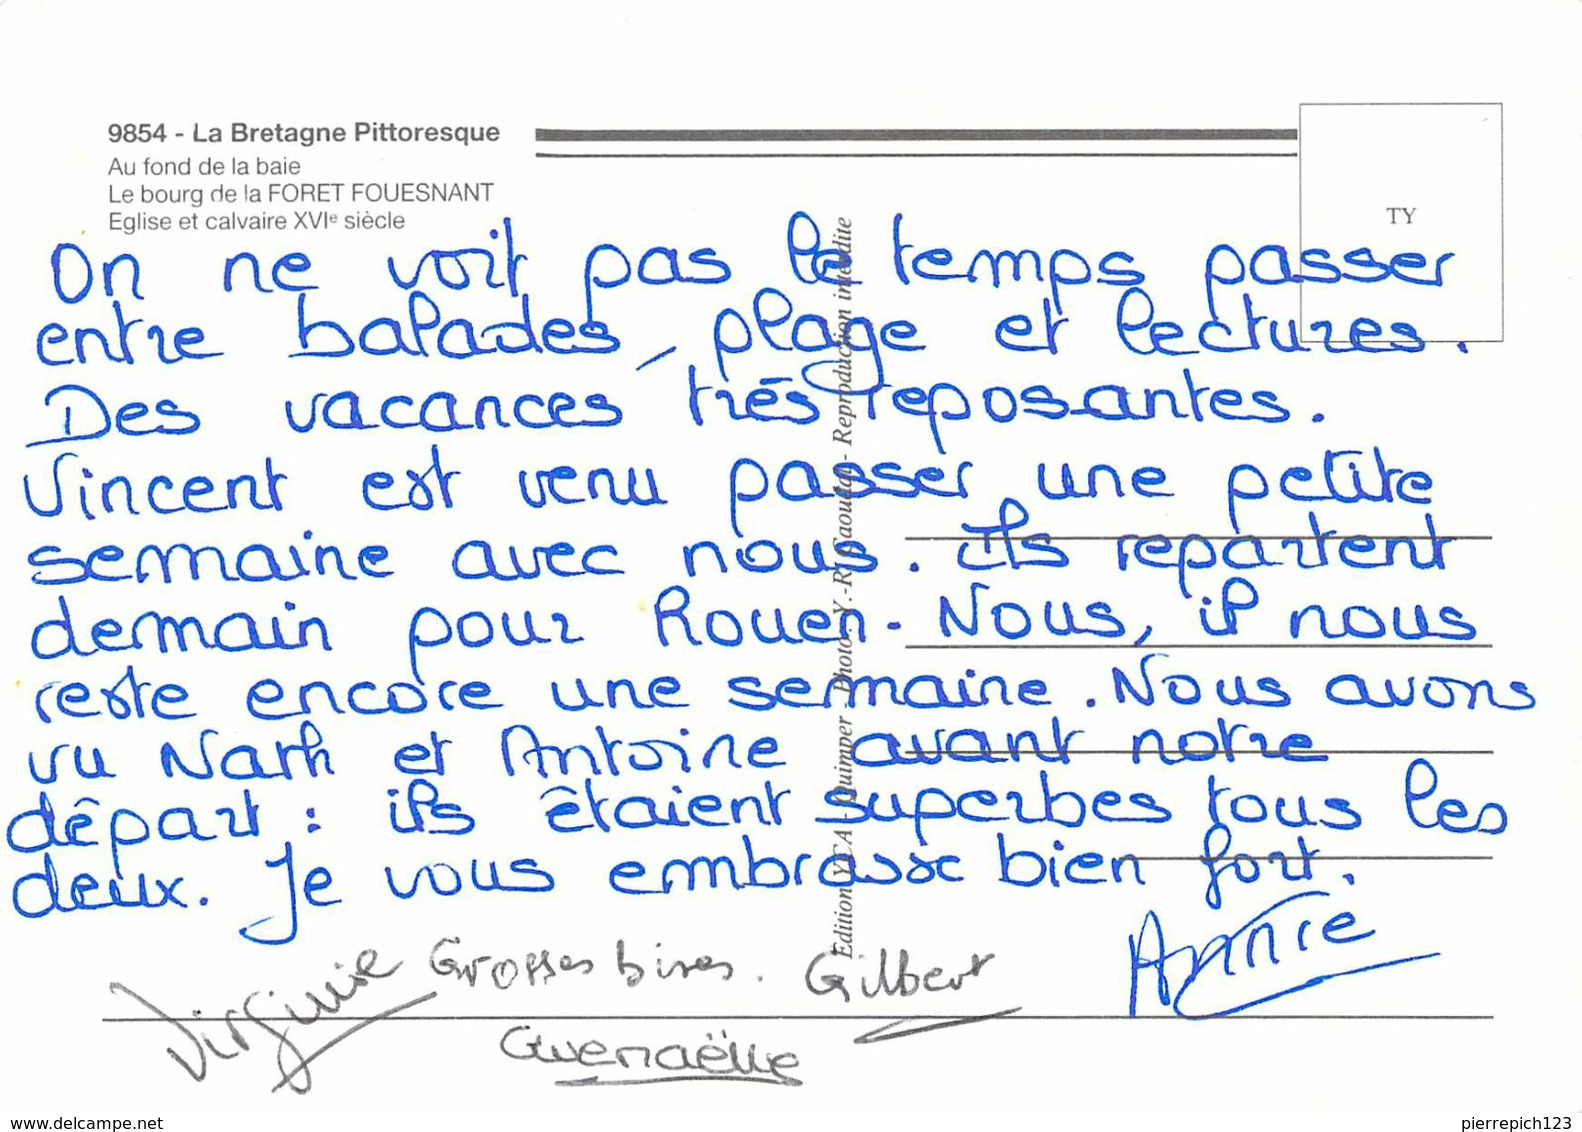 9854 - La Bretagne Pittoresque
Au fond de la baie
Le bourg de la FORET FOUESNANT
Eglise et calvaire XVIe siècle
TY
On ne voit pas le temps passer
entre balades, plage et lectures.
Des vacances très reposantes.
Vincent est venu passer une petite
semaine avec nous. Ils repartent
demain pour Rouen. Nous, il nous
reste encore une semaine. Nous avons
vu Nath et Antoine avant notre
départ : ils étaient superbes tous les
deux. Je vous embrasse bien fort.
Annie
Virginie Grosses bises. Gilbert
Gwenaëlle
Edition YCA - Quimper - Photo: Y.-R. Caoudal - Reproduction interdite
www.delcampe.net
pierrepich123